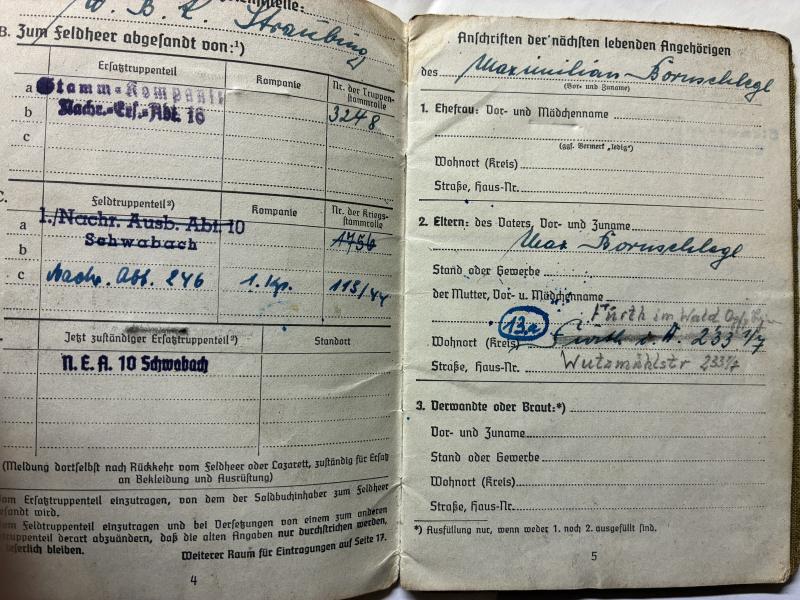 W. B. K. Straubing
B. Zum Feldheer abgesandt von:¹)
Ersatztruppenteil
Kompanie
Nr. der Truppen-
stammrolle
a Stamm-Kompanie
b Nachr.-Ers.-Abt. 16
3248
c
C.
Feldtruppenteil²)
Kompanie
Nr. der Kriegs-
stammrolle
a 1./Nachr. Ausb. Abt. 10
b Schwabach
1756
c Nachr. Abt. 246
1. Kp.
113/44
Jetzt zuständiger Ersatztruppenteil²)
Standort
N. E. A. 10 Schwabach
(Meldung dortselbst nach Rückkehr vom Feldheer oder Lazarett, zuständig für Ersatz
an Bekleidung und Ausrüstung)
vom Ersatztruppenteil einzutragen, von dem der Soldbuchinhaber zum Feldheer
gesandt wird.
vom Feldtruppenteil einzutragen und bei Versetzungen von einem zum anderen
truppenteil derart abzuändern, daß die alten Angaben nur durchstrichen werden,
leserlich bleiben.
Weiterer Raum für Eintragungen auf Seite 17.
4
Anschriften der nächsten lebenden Angehörigen
des Maximilian Bornschlegl
(Vor- und Zuname)
1. Ehefrau: Vor- und Mädchenname
(ggf. Vermerk „ledig")
Wohnort (Kreis)
Straße, Haus-Nr.
2. Eltern: des Vaters, Vor- und Zuname
Max Bornschlegl
Stand oder Gewerbe
der Mutter, Vor- u. Mädchenname
Furth im Wald
13a
Wohnort (Kreis) Furth i. W. 233 1/7
Straße, Haus-Nr. Wutzmühlstr 233 1/7
3. Verwandte oder Braut:*)
Vor- und Zuname
Stand oder Gewerbe
Wohnort (Kreis)
Straße, Haus-Nr.
*) Ausfüllung nur, wenn weder 1. noch 2. ausgefüllt sind.
5